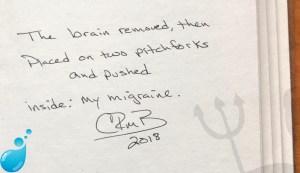 The brain removed, then
Placed on two pitchforks
and pushed
inside: My migraine.
2018